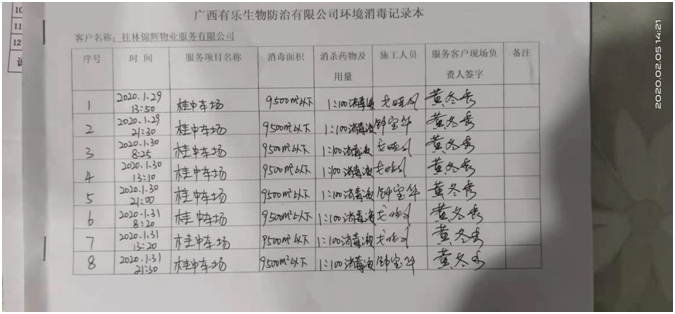 广西有乐生物防治有限公司环境消毒记录本
客户名称： 桂林锦辉物业服务有限公司
序号 时 间 服务项目名称 消毒面积 消杀药物及用量 施工人员 服务客户现场负责人签字 备注
1 2020.1.29 13:50 桂中车场 9500m²以下 1:100消毒液 黄冬秀
2 2020.1.29 21:30 桂中车场 9500m²以下 1:100消毒液 钟宝华 黄冬秀
3 2020.1.30 8:25 桂中车场 9500m²以下 1:100消毒液 黄冬秀
4 2020.1.30 13:10 桂中车场 9500m²以下 1:100消毒液 黄冬秀
5 2020.1.30 21:00 桂中车场 9500m²以下 1:100消毒液 钟宝华 黄冬秀
6 2020.1.31 8:20 桂中车场 9500m²以下 1:100消毒液 黄冬秀
7 2020.1.31 13:20 桂中车场 9500m²以下 1:100消毒液 黄冬秀
8 2020.1.31 21:30 桂中车场 9500m²以下 1:100消毒液 钟宝华 黄冬秀
10
11
12
2020.02.05 14:21